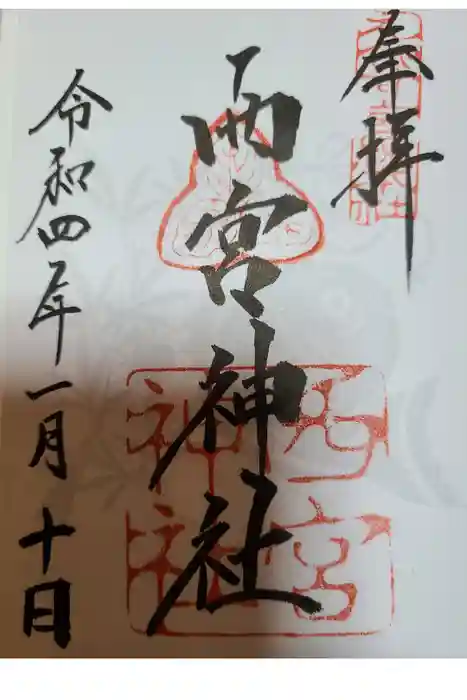 奉拝
西宮神社
令和四年一月十日
西宮神社